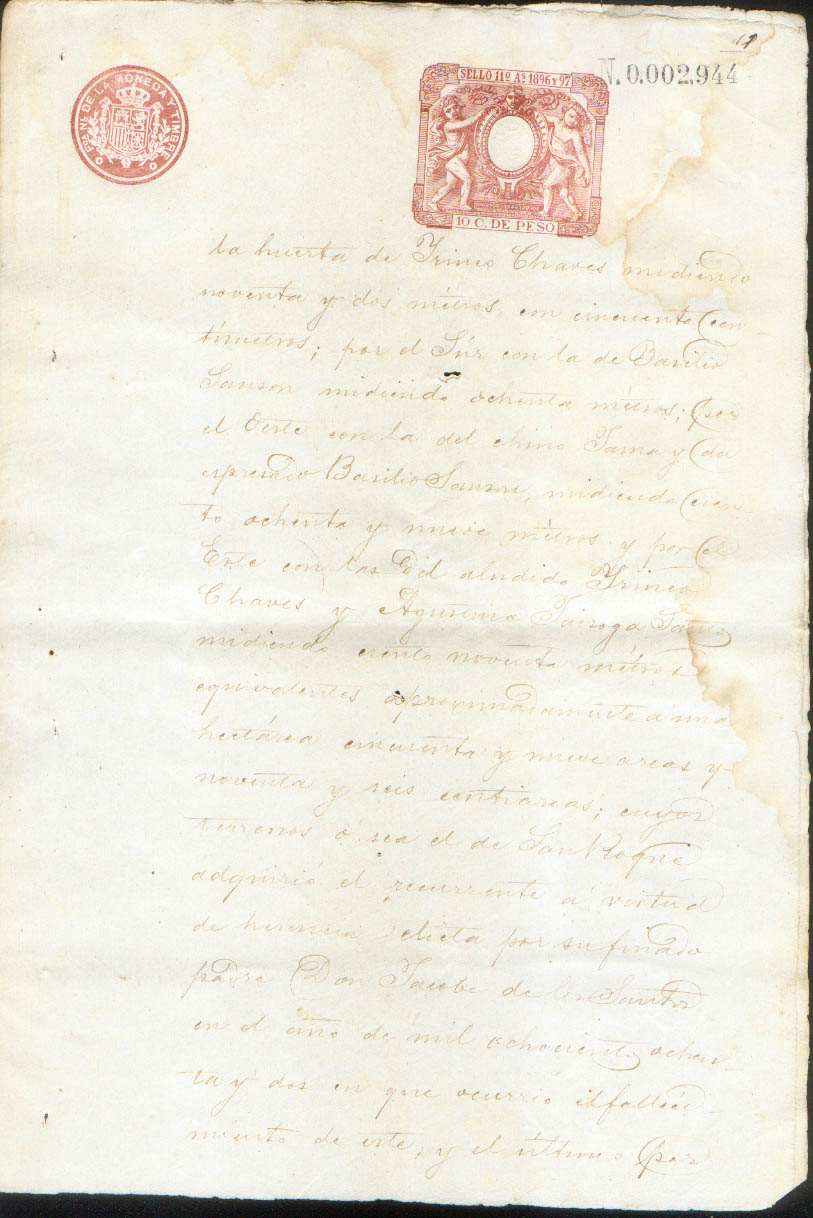 12
FCA. NL. DE LA MONEDA Y TIMBRE
SELLO 11º AS. 1896 Y 97
N. 0.002.944
10 C. DE PESO
la huerta de Yrineo Chaves midiendo
noventa y dos métros, con cincuenta cen-
tímetros; por el Súr con la de Basilio
Sanson midiendo ochenta métros; por
el Oeste con la del chino Tama y da
espresado Basilio Sanson, midiendo cien-
to ochenta y nueve métros y por el
Este con las del aludido Yrineo
Chaves y
midiendo ciento noventa métros
equivalentes aproximadamente á una
hectárea cincuenta y nueve areas y
noventa y seis centiareas; cuyos
terrenos ó sea el de San Roque
adquirió el recurrente a virtud
de herencia dicta por su finado
padre Don Jacobe de los Santos
en el año de mil ochociento ochen-
ta y dos en que ocurrió el falleci-
miento de este, y el último por